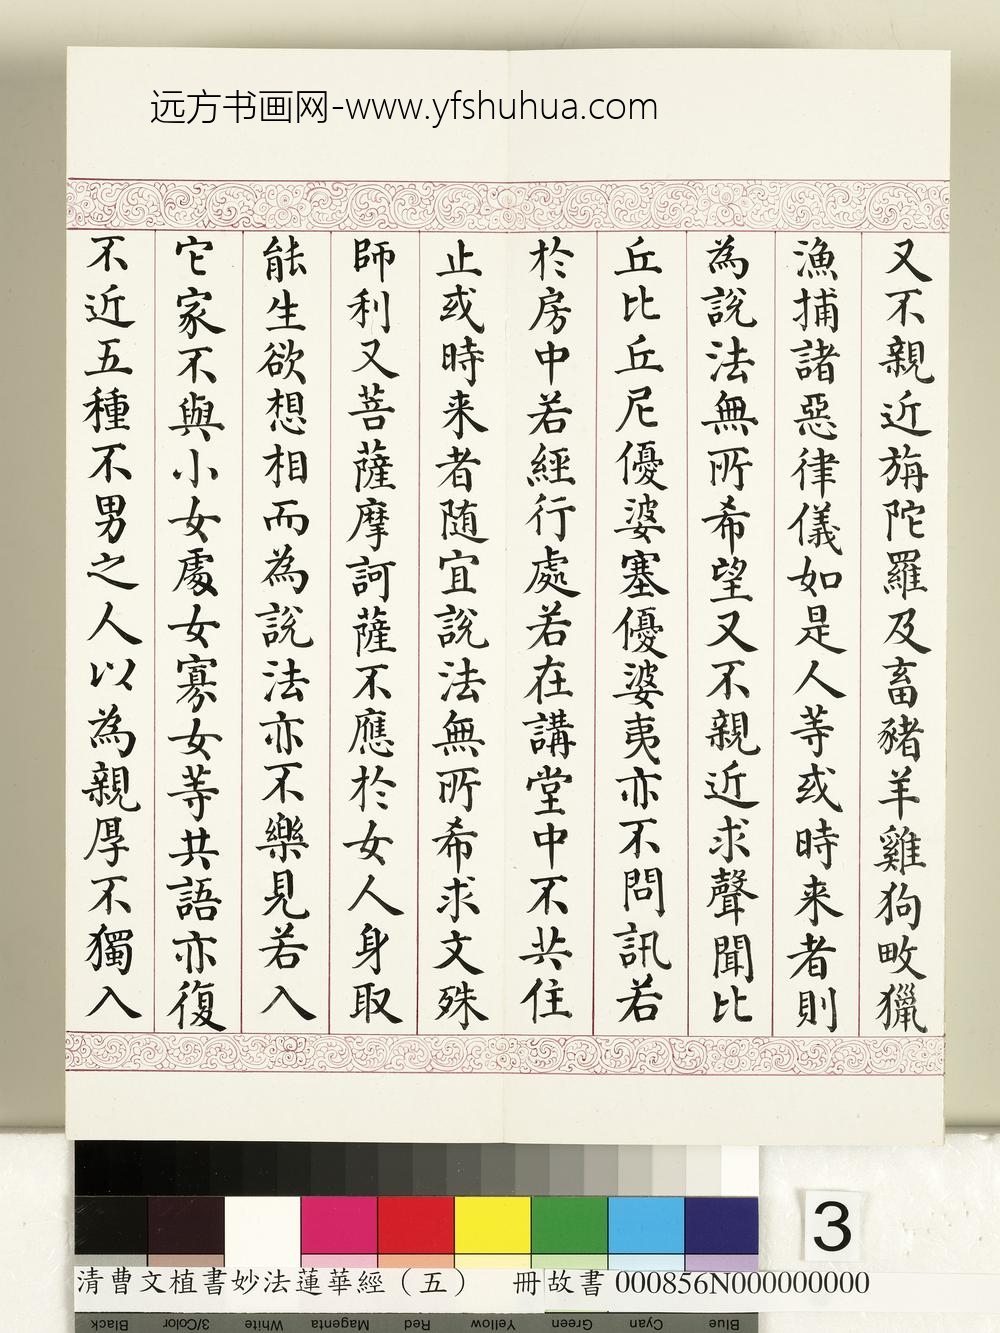 远方书画网-www.yfshuhua.com
又不親近旃陀羅及畜豬羊雞狗畋獵
漁捕諸惡律儀如是人等或時来者則
為說法無所希望又不親近求聲聞比
丘比丘尼優婆塞優婆夷亦不問訊若
於房中若經行處若在講堂中不共住
止或時来者随宜說法無所希求文殊
師利又菩薩摩訶薩不應於女人身取
能生欲想相而為說法亦不樂見若入
它家不與小女處女寡女等共語亦復
不近五種不男之人以為親厚不獨入
3
清曹文植書妙法蓮華經（五） 冊故書 000856N000000000
Black 3/Color White Magenta Red Yellow Green Cyan Blue